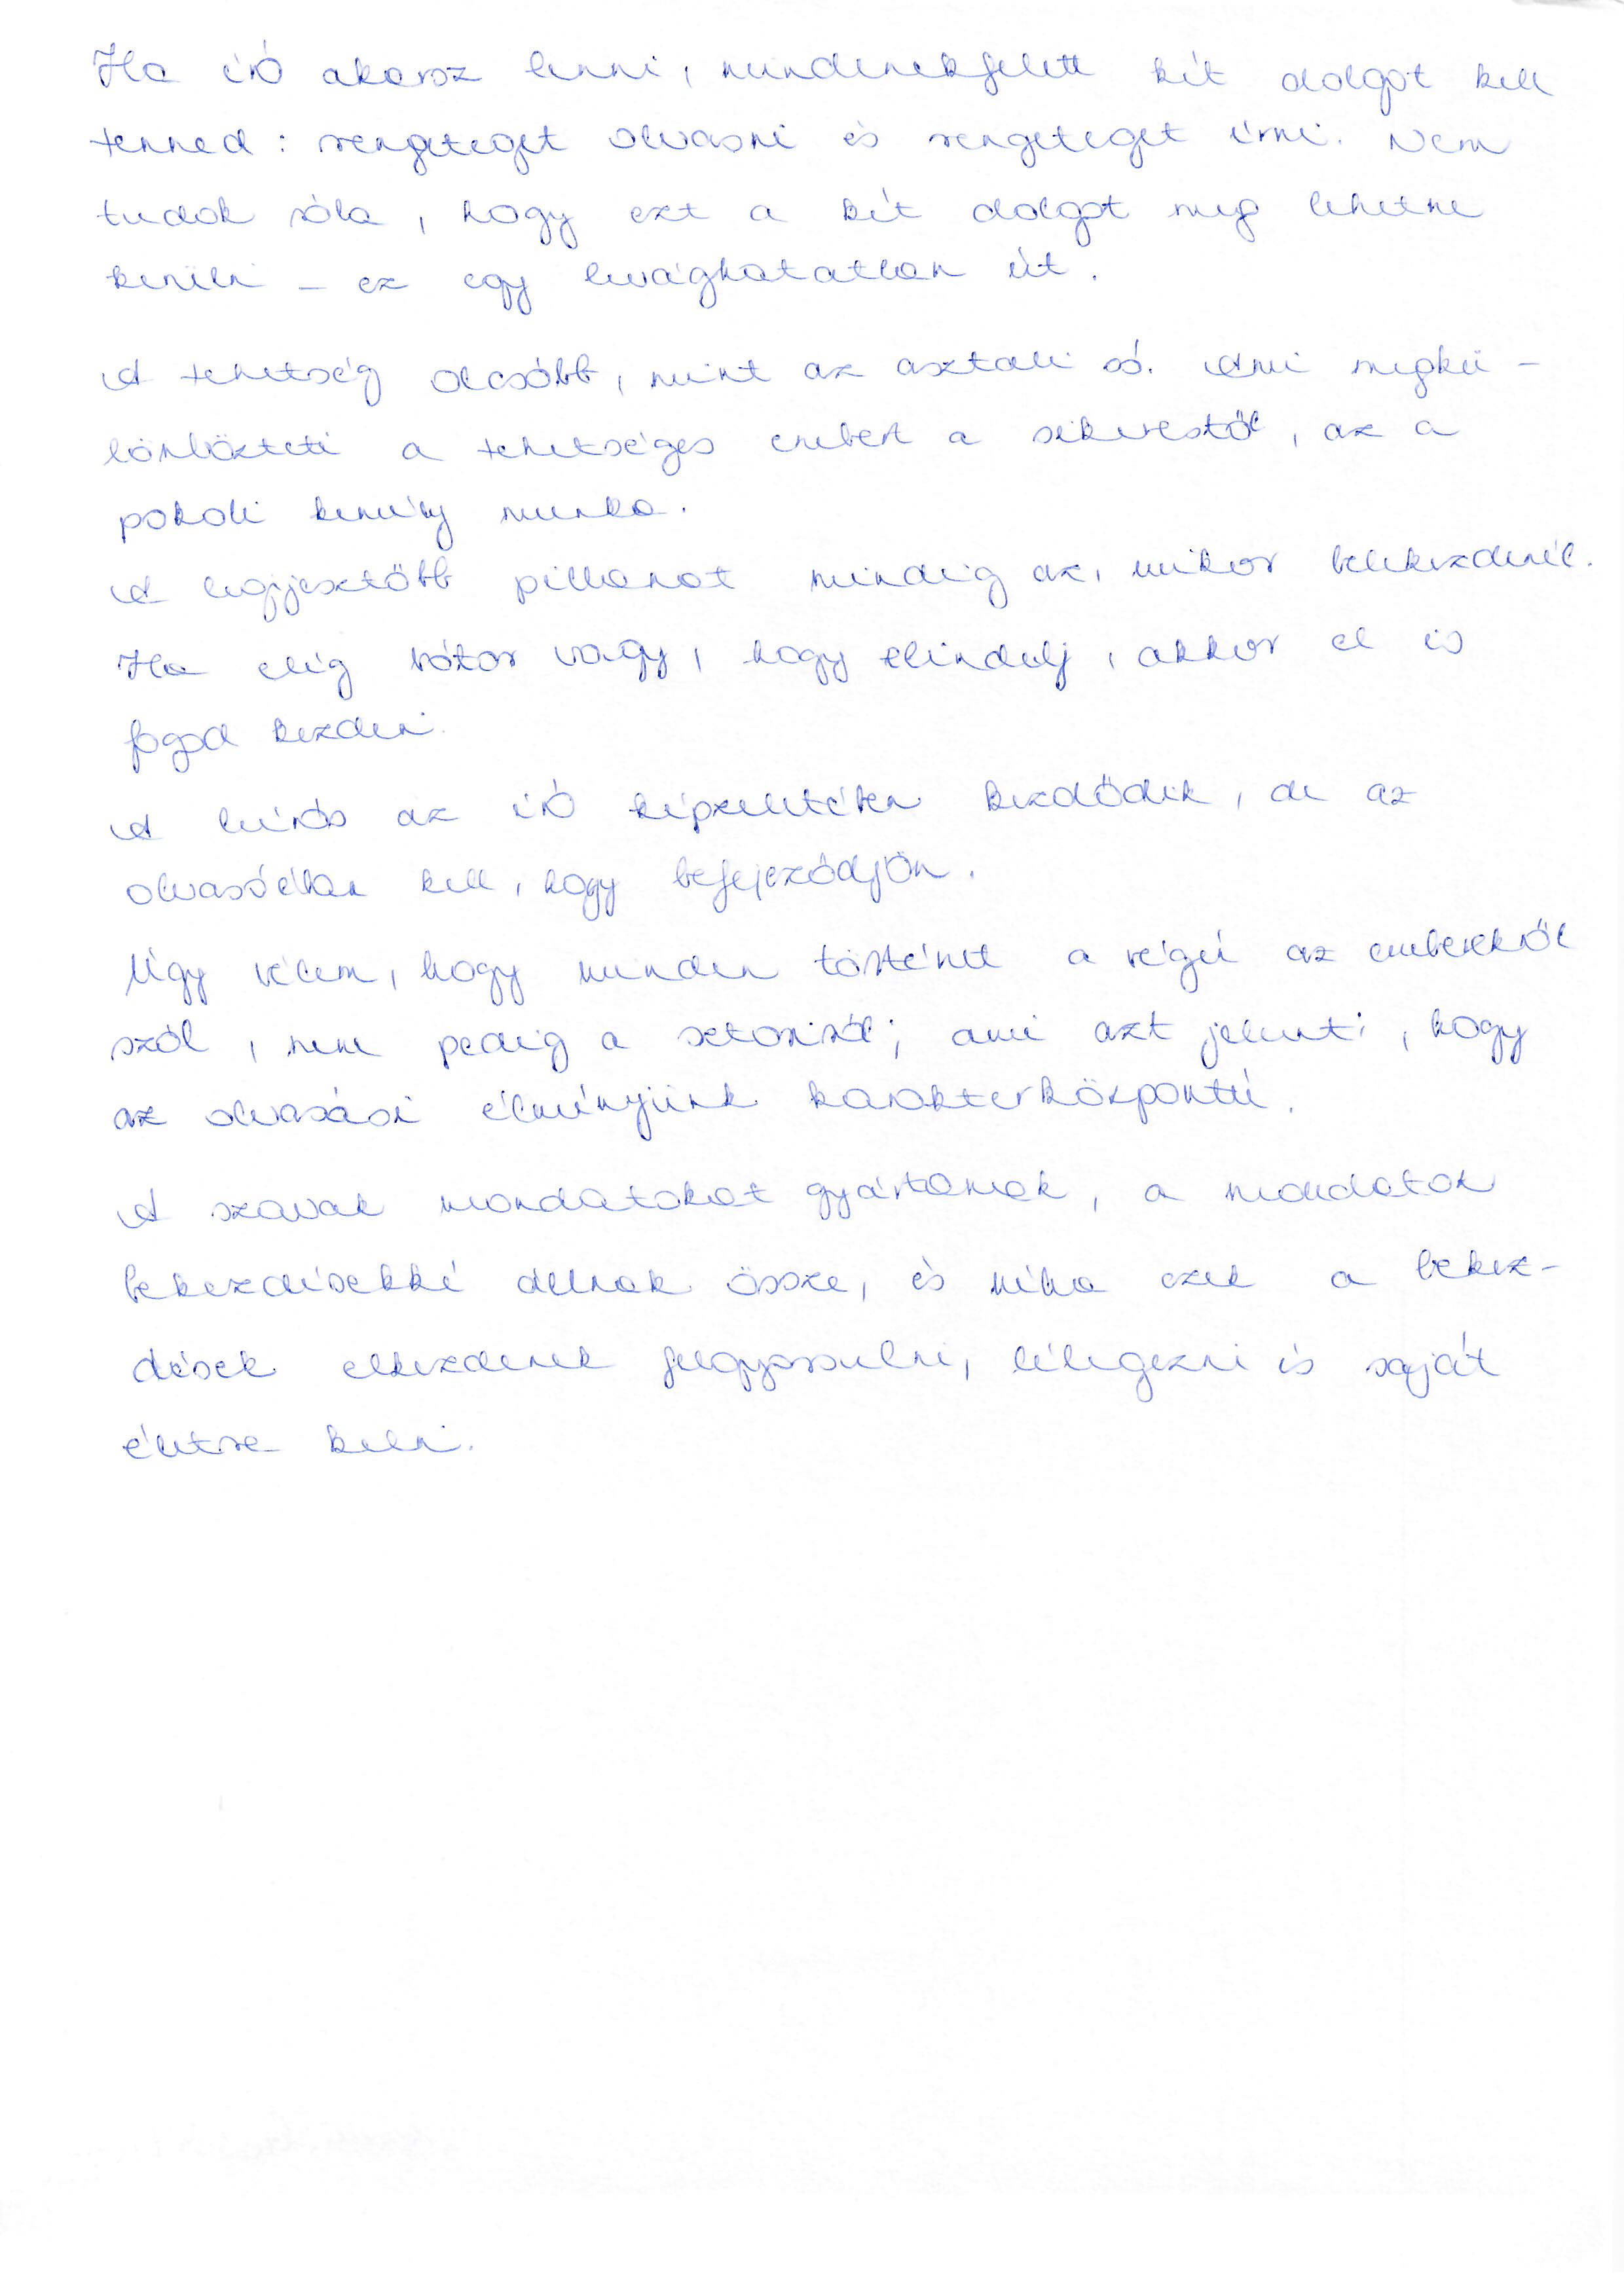 Ha író akarsz lenni, mindenekfelett két dolgot kell
tenned: rengeteget olvasni és rengeteget írni. Nem
tudok róla, hogy ezt a két dolgot meg lehetne
kerülni – ez egy levághatatlan út.
A tehetség olcsóbb, mint az asztali só. Ami megkü-
lönbözteti a tehetséges embert a sikerestől, az a
pokoli kemény munka.
A legijesztőbb pillanat mindig az, mikor belekezdenél.
Ha elég bátor vagy, hogy elindulj, akkor el is
fogod kezdeni.
A leírás az író képzeletében kezdődik, de az
olvasóéban kell, hogy befejeződjön.
Úgy vélem, hogy minden történet a végén az emberekről
szól, nem pedig a sztoriról; ami azt jelenti, hogy
az olvasási élményünk karakterközpontú.
A szavak mondatokat gyártanak, a mondatok
bekezdésekké állnak össze, és néha ezek a bekez-
dések elkezdenek felgyorsulni, lélegezni és saját
életre kelni.